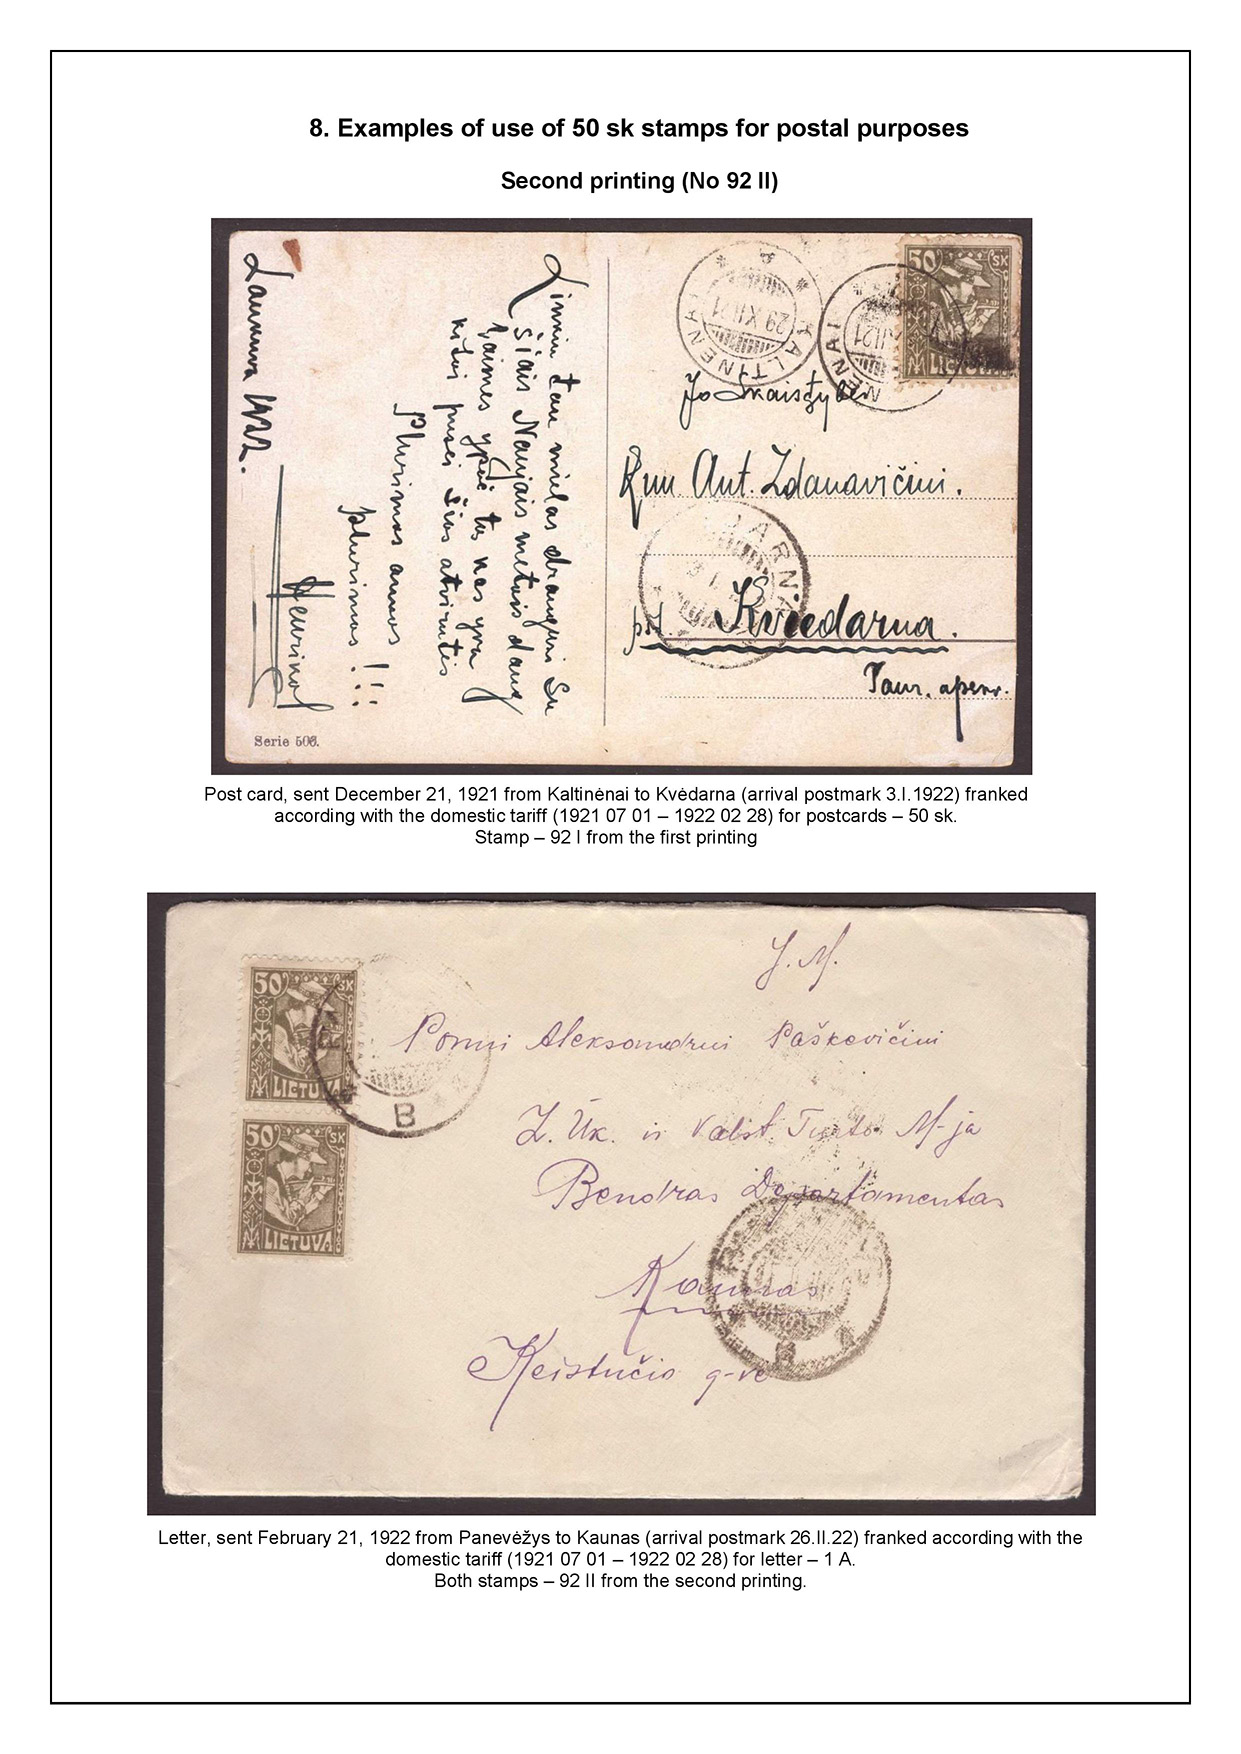 8. Examples of use of 50 sk stamps for postal purposes
Second printing (No 92 II)
Linkiu tau mielas draugini Su
šiais Naujais metais daug
laimės ypač tos kas yra
kitoj pusėj šios atvirutės
Plurimos annos
plurimos!!!
Henrikas
Laukuva 1922.
Serie 506.
50 SK
LIETUVA
KALTINENAI
29 XII 21
NENAI
II 21
Jo Skaistybei
Kun. Ant. Zdanavičini.
DARNA
3 I
pšt. Kviedarna.
Taur. apskr.
Post card, sent December 21, 1921 from Kaltinėnai to Kvėdarna (arrival postmark 3.I.1922) franked
according with the domestic tariff (1921 07 01 – 1922 02 28) for postcards – 50 sk.
Stamp – 92 I from the first printing
50 SK
LIETUVA
50 SK
LIETUVA
B
J. M.
Ponui Aleksandrui Paškevičiui
Ž. Ūk. ir Valst. Turto M-ja
Bendras Departamentas
Kaunas
Keistučio g-vė
Letter, sent February 21, 1922 from Panevėžys to Kaunas (arrival postmark 26.II.22) franked according with the
domestic tariff (1921 07 01 – 1922 02 28) for letter – 1 A.
Both stamps – 92 II from the second printing.